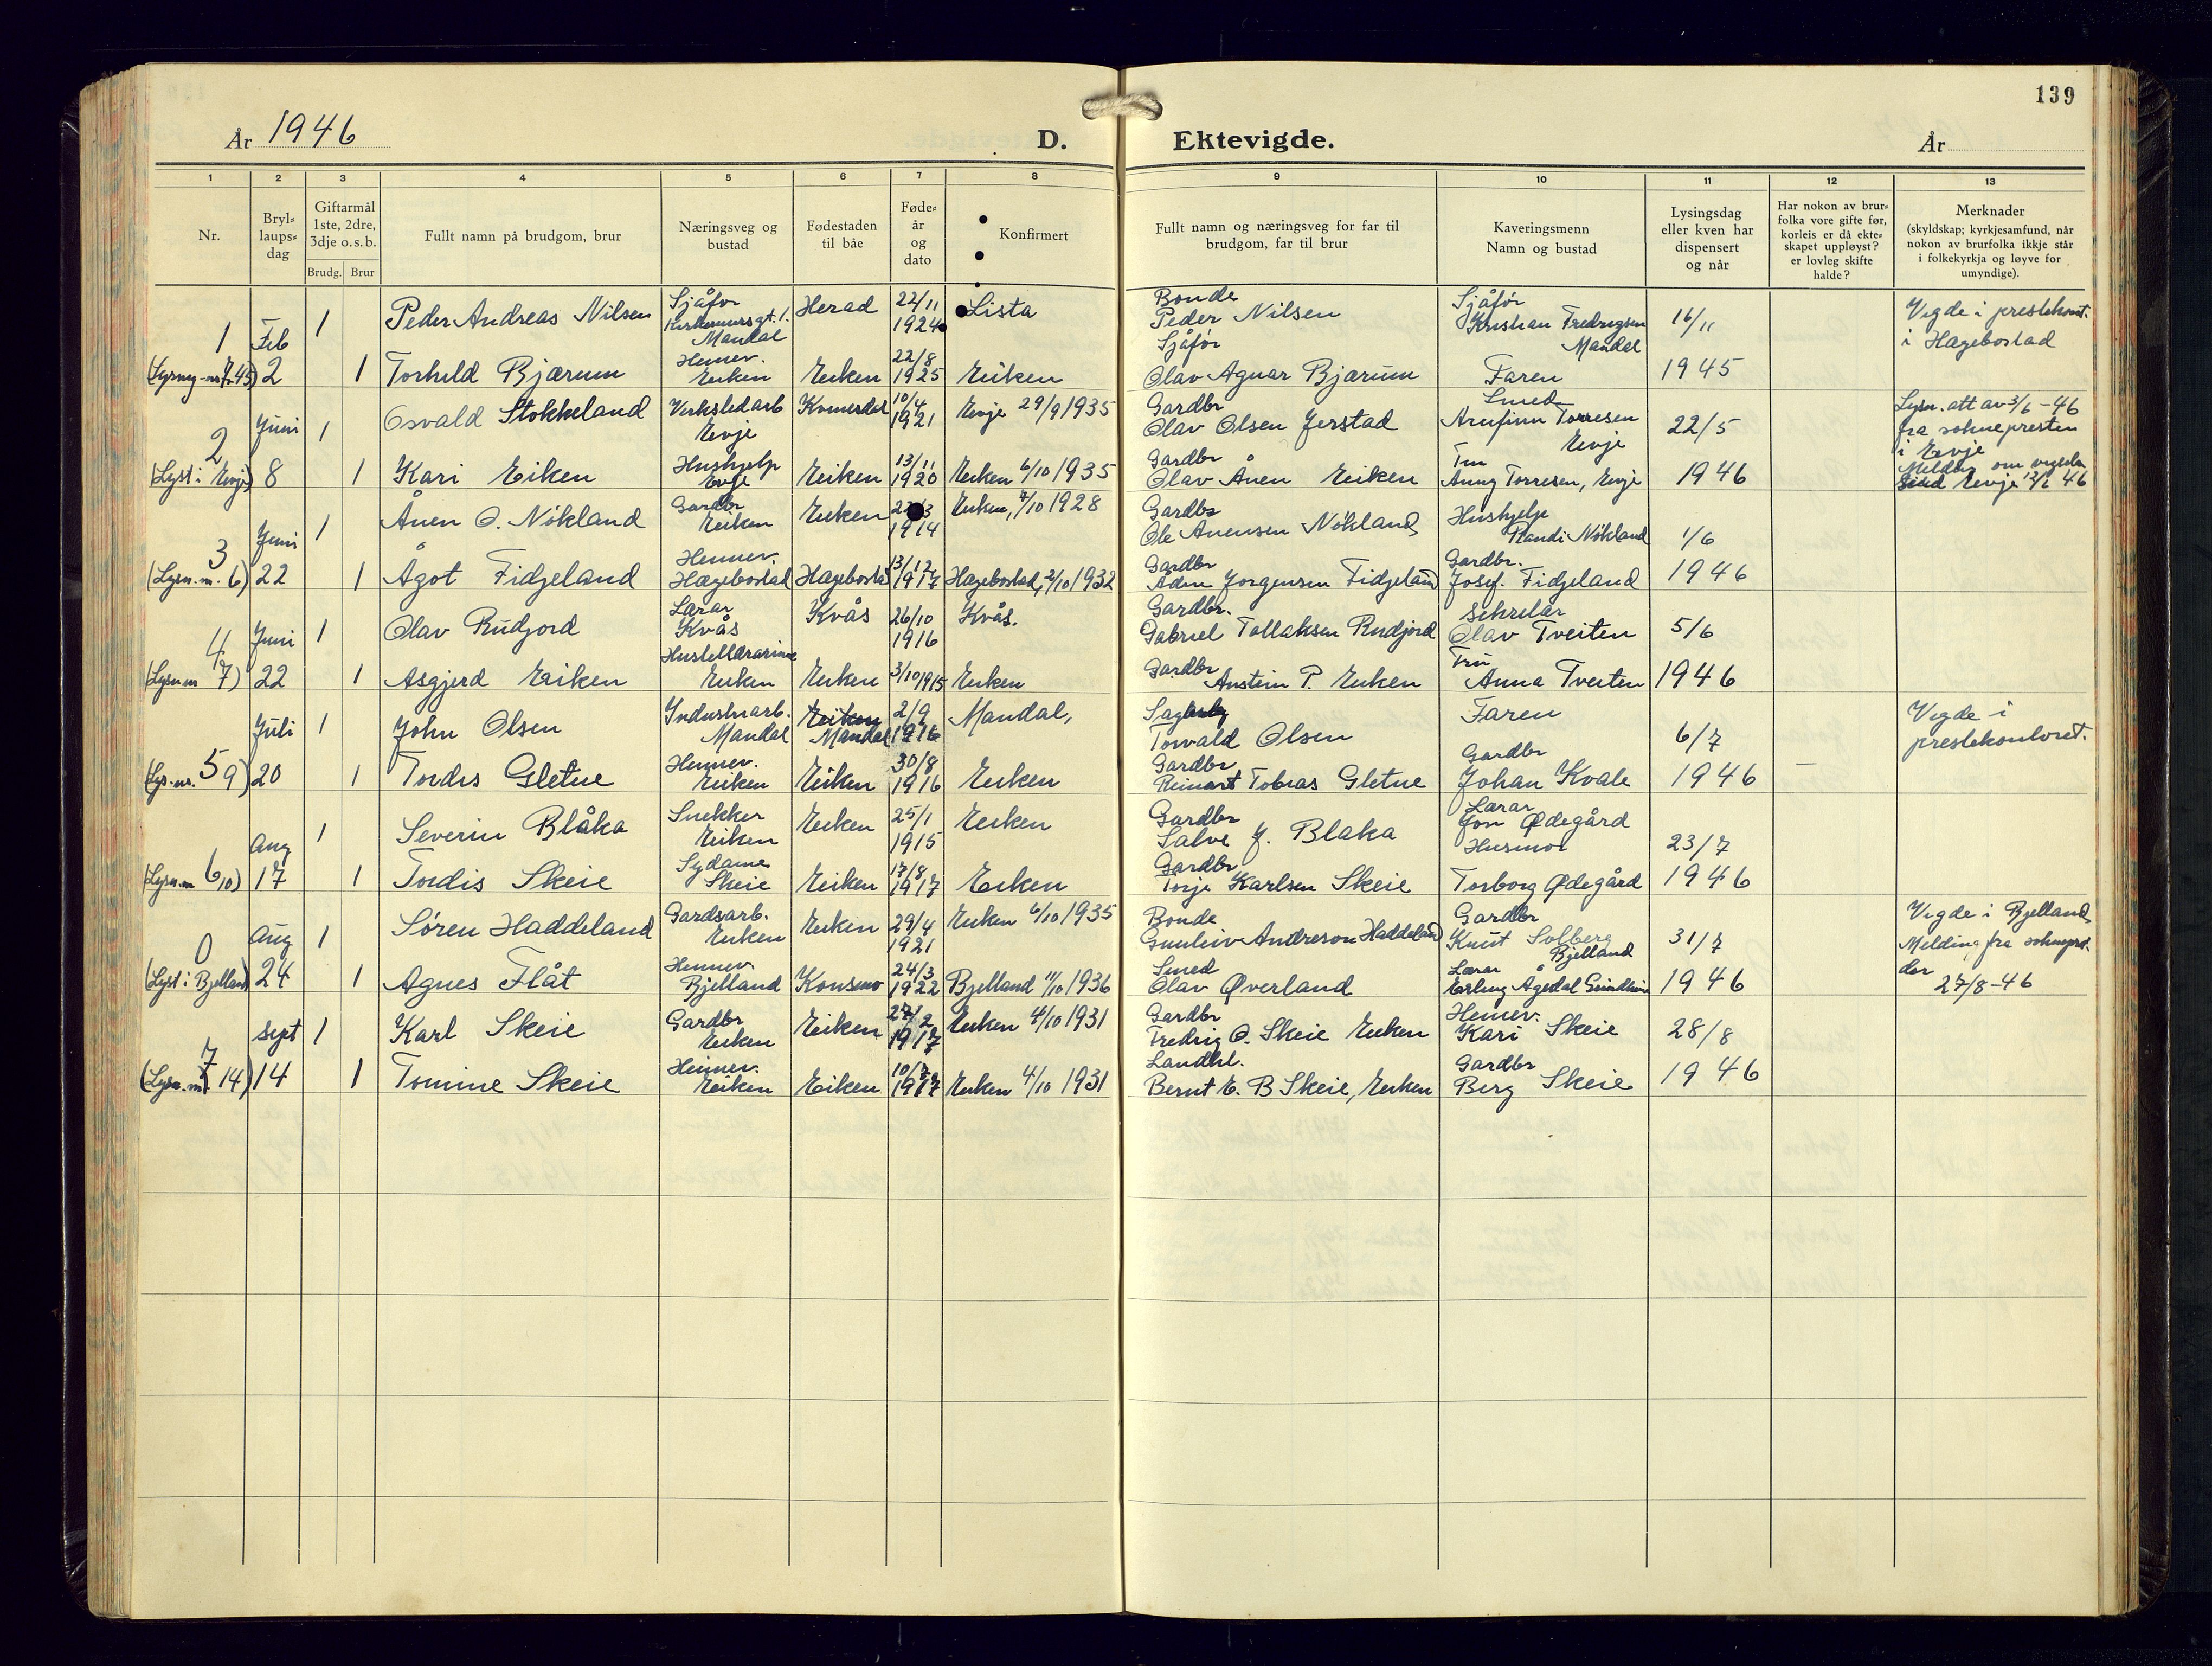 139
År 1946
D. Ektevigde.
År
1 2 3 4 5 6 7 8 9 10 11 12 13
Nr.
Bryl-
laups-
dag
Giftarmål
1ste, 2dre,
3dje o.s.b.
Brudg. Brur
Fullt namn på brudgom, brur
Næringsveg og
bustad
Fødestaden
til båe
Føde-
år
og
dato
Konfirmert
Fullt namn og næringsveg for far til
brudgom, far til brur
Kaveringsmenn
Namn og bustad
Lysingsdag
eller kven har
dispensert
og når
Har nokon av brur-
folka vore gifte før,
korleis er då ekte-
skapet uppløyst?
er lovleg skifte
halde?
Merknader
(skyldskap; kyrkjesamfund, når
nokon av brurfolka ikkje står
i folkekyrkja og løyve for
umyndige).
1 Feb 1 Peder Andreas Nilsen Sjåfør
Mandal Herad 22/11
1924 Lista Bonde
Peder Nilsen Sjåfør
Kristian Fredrigsen
Mandal 16/11 Vigde i prestekont.
i Hægebostad
2 1 Torhild Bjærum Heimev.
Eiken Eiken 22/8
1925 Eiken Sjåfør
Olav Agnar Bjærum Faren 1945
2 Juni 1 Osvald Stokkeland Verkstedarb
Evje Kvinesdal 10/4
1921 Evje 29/9 1935 Gardbr
Olav Olsen Jerstad Smed
Arnfinn Torresen
Evje 22/5 Lysn.att av 3/6-46
fra soknepresten
i Evje
(Lyst i Evje) 8 1 Kari Eiken Hushjelp
Evje Eiken 13/11
1920 Eiken 6/10 1935 Gardbr
Olav Ånen Eiken Fru
Anny Torresen, Evje 1946 Meldn om vigsla
Evje 12/6 46
3 Juni 1 Ånen O. Nökland Gardbr
Eiken Eiken
1914 Eiken, 7/10 1928 Gardbr
Ole Anensen Nökland Hushjelp
Randi Nökland 1/6
(Lysn.nr. 6) 22 1 Ågot Fidjeland Heimev.
Hægebostad Hægebostad 13/12
1917 Hægebostad, 2/10 1932 Gardbr
Aden Jørgensen Fidjeland Gardbr.
Josef. Fidjeland 1946
4 Juni 1 Olav Rudjord Lærar
Kvås Kvås 26/10
1916 Kvås. Gardbr.
Gabriel Tollaksen Rudjord Sekretær
Olav Tveiten 5/6
(Lysn.nr 7) 22 1 Asgjerd Eiken Hustellærarinne
Eiken Eiken 3/10 1915 Eiken Gardbr
Austein P. Eiken Fru
Anna Tveiten 1946
5 Juli 1 John Olsen Industriarb.
Mandal Eiken
Mandal 2/9
1916 Mandal, Torvald Olsen Faren 6/7 Vigde i
prestekontoret.
(Lys.nr. 9) 20 1 Tordis Gletne Heimev.
Eiken Eiken 30/8
1916 Eiken Gardbr
Reinart Tobias Gletne Gardbr
Johan Kvale 1946
6 Aug 1 Severin Blåka Snekker
Eiken Eiken 25/1
1915 Eiken Gardbr
Salve J. Blaka Lærar
Jon Ødegård 23/7
(Lysn.nr 10) 17 1 Tordis Skeie Sydame
Skeie Eiken 17/8
1917 Eiken Gardbr
Torje Karlsen Skeie Husmor
Torborg Ødegård 1946
0 Aug 1 Søren Haddeland Gardsarb.
Eiken Eiken 29/4
1921 Eiken 6/10 1935 Bonde
Gunleiv Andreson Haddeland Gardbr
Knut Solberg
Bjelland 31/7 Vigde i Bjelland
Melding fra soknepr.
der
27/8-46
(Lyst i Bjelland) 24 1 Agnes Flåt Heimev.
Bjelland Konsmo 24/3
1922 Bjelland 11/10 1936 Smed
Olav Øverland Lærar
Erling Ågedal Grindheim 1946
7 Sept 1 Karl Skeie Gardbr
Eiken Eiken 27/2
1917 Eiken 4/10 1931 Gardbr
Fredrig O. Skeie Eiken Heimev.
Kari Skeie 28/8
(Lysn.nr 14) 14 1 Tomine Skeie Heimev.
Eiken Eiken 1917 Eiken 4/10 1931 Landhl.
Bernt E. B Skeie, Eiken Gardbr
Berg Skeie 1946